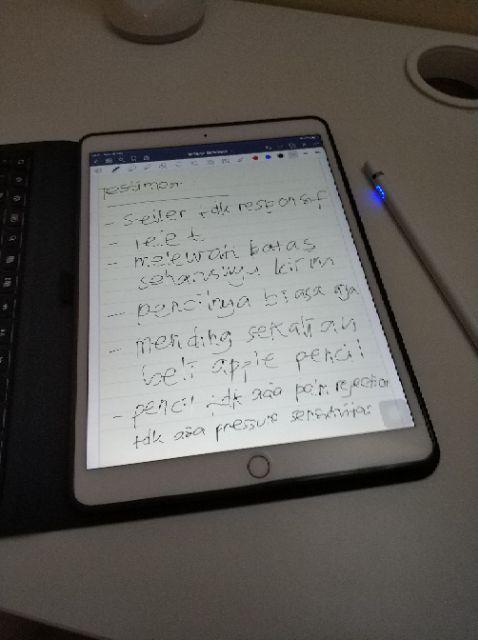 Testimoni
- Seller tdk responsif
- lelet
- melewati batas
seharusnya kirim
- pencilnya biasa aja
- mending sekalian
beli apple pencil
- pencil tdk ada palm rejection
tdk ada pressure sensitivitas